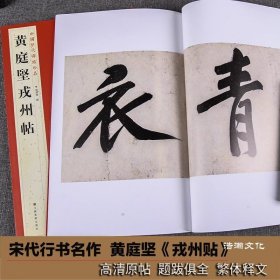 中国历代碑帖珍品
黄庭坚戎州帖
青
衣
宋代行书名作 黄庭坚《戎州贴》
浩瀚文化
高清原帖 题跋俱全 繁体释文